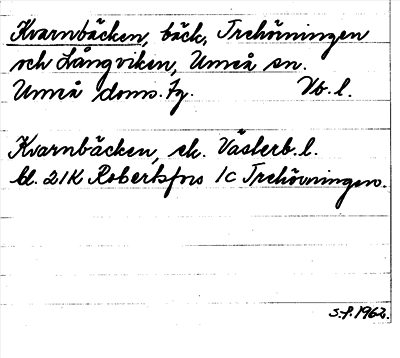 Kvarnbäcken, bäck, Trehörningen
och Långviken, Umeå sn.
Umeå doms. tg. Vb. l.
Kvarnbäcken, ek. Västerb. l.
bl. 21K Robertsfors 1C Trehörningen.
S.f. 1962.